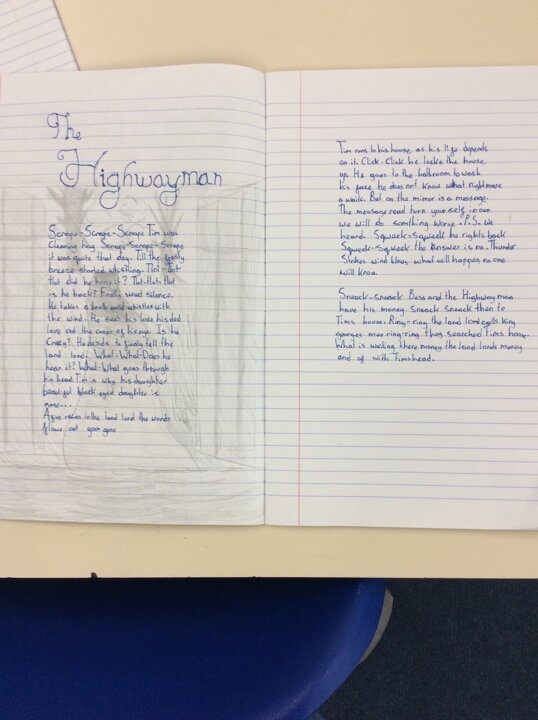 The
Highwayman
Scrape-Scrape-Scrape Tim was
Cleaning hay Scrape-Scrape-Scrape
it was quite that day. Till the frosty
breeze started whistling. Tlot-tlot
that did he hear it? Tlot-tlots tlot
is he back? Finally sweet silence,
he takes a breth and whistles with
the wind. He sees his love his ded
love out the corner of his eye. Is he
Crazy? He decids to finaly tell the
land lord. What-What-Does he
hear it? What-What goes through
his head Tim is why his daughter
beautiful black eyed daughter is
gone...
A fire raises in the land lord the words
flows out your gone
Tim runs to his house as his life depends
on it. Click-Click he locks the house
up. He goes to the bathroom to wash
his face he does not know what nightmare
a waits. But on the mirror is a message.
The message read turn yourself in or we
we will do somthing worse. P.S. We
heard. Sqweek-Sqweek he rights back
Sqweek-sqweek the answer is no. Thunder
Strkes wind blows what will happen no one
will know.
Sneack-sneack. Bess and the Highwayman
have his money. Sneack sneack than to
Tims house. Ring-ring the land lord calls king
georges men ring-ring. They searched Tims house.
What is waiting there money the land lords money
and of with Tims head.